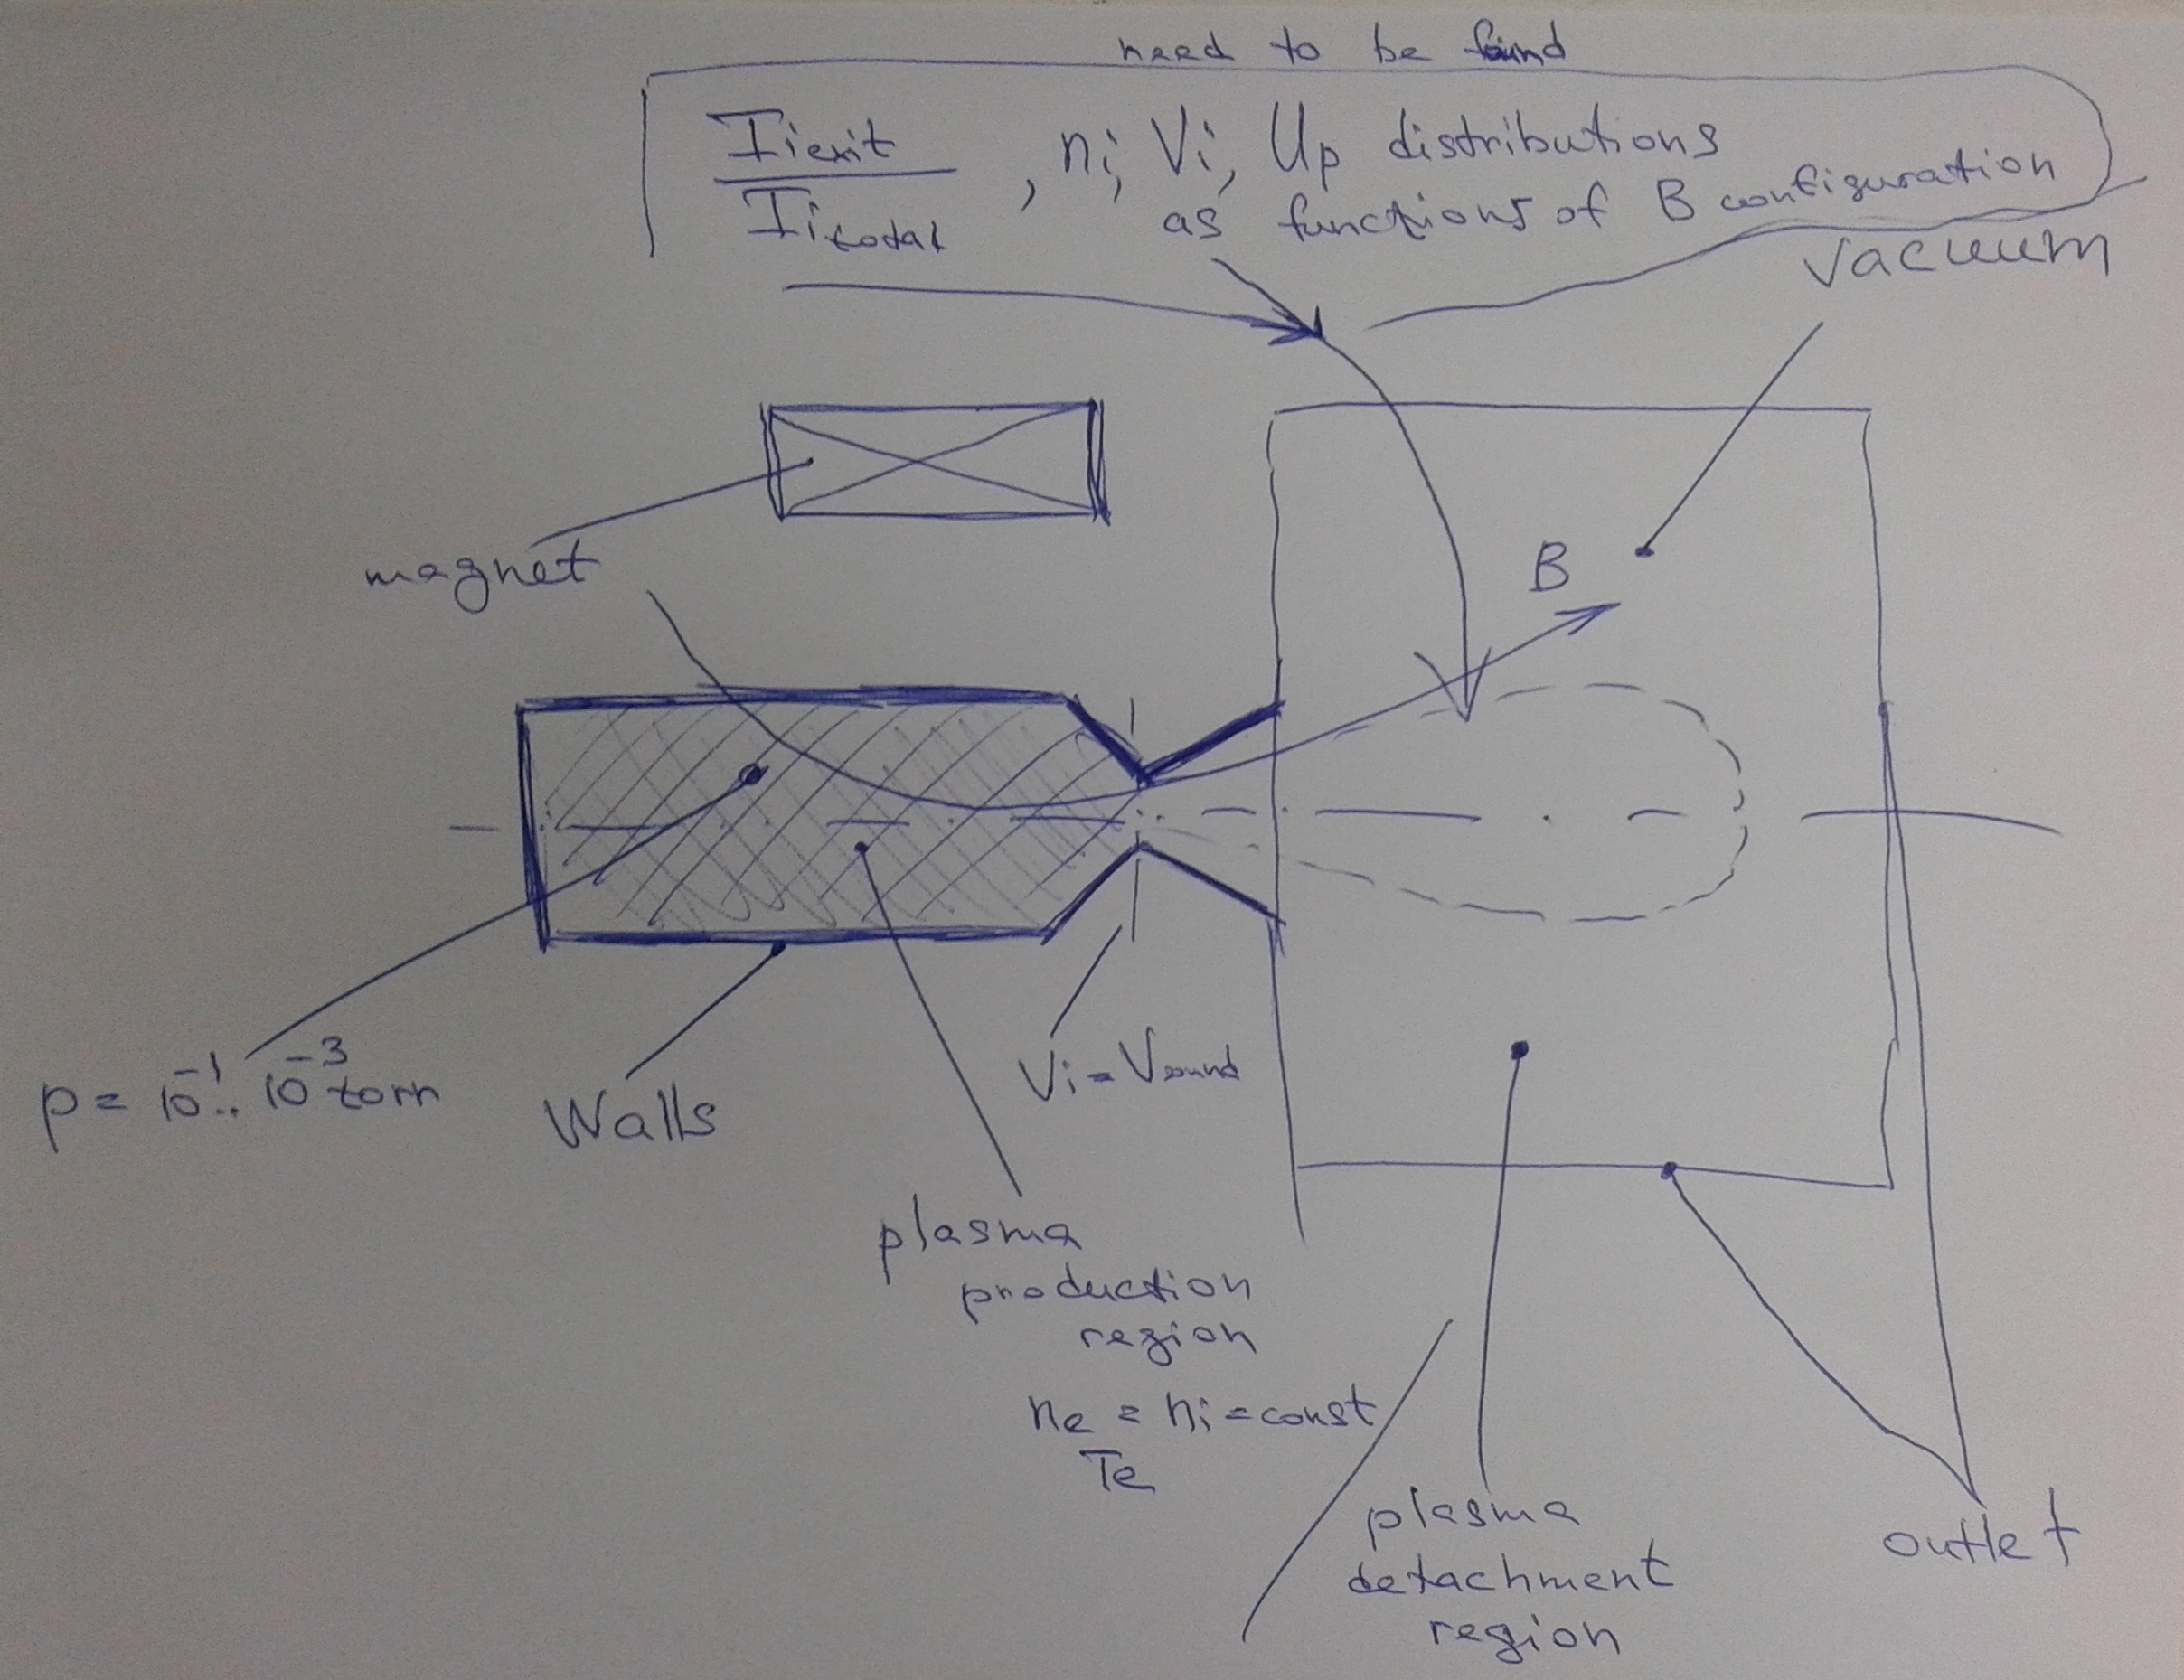 need to be found
Iiexit
Iitotal
, ni, Vi, Up distributions
as functions of B configuration
vacuum
B
magnet
p = 10^-1 .. 10^-3 torr
Walls
Vi = Vsound
plasma
production
region
ne = ni = const
Te
plasma
detachment
region
outlet